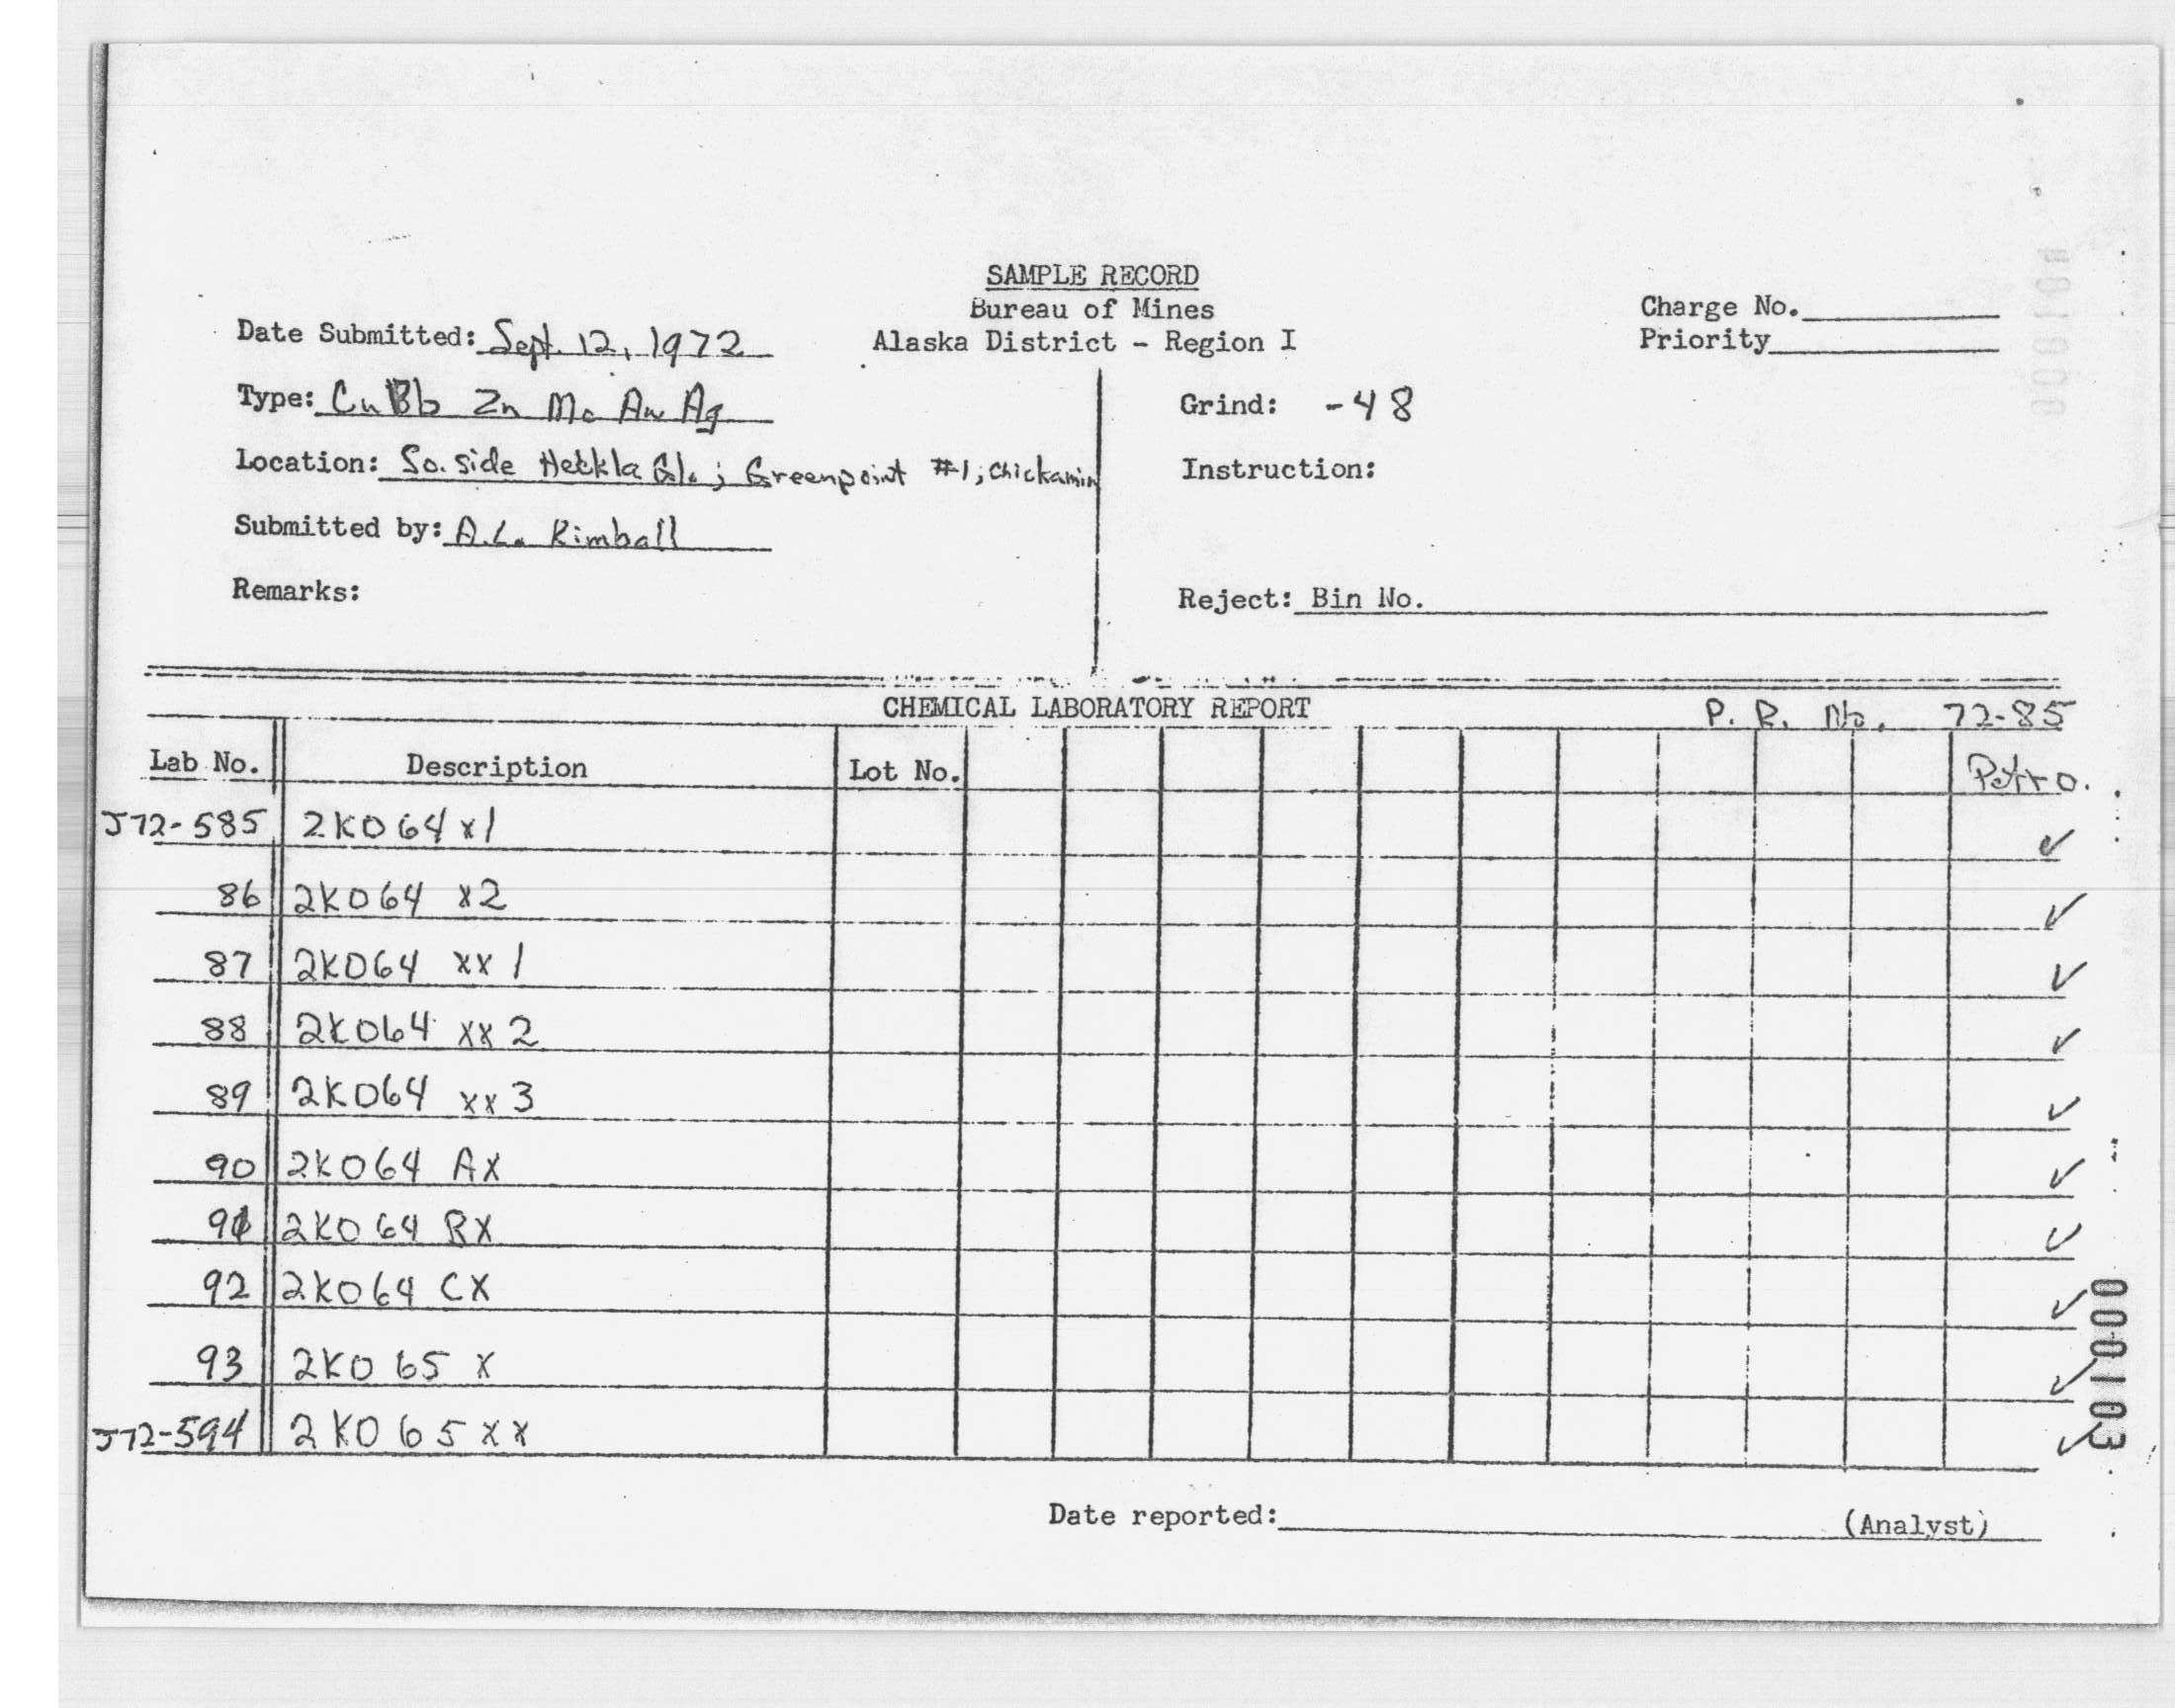 SAMPLE RECORD
Bureau of Mines
Alaska District - Region I
Charge No.
Priority
Date Submitted: Sept. 12, 1972
Type: Cu Pb Zn Mo Au Ag
Location: So. side Heckla Gl.; Greenpoint #1; Chickamin
Submitted by: A.L. Kimball
Remarks:
Grind: -48
Instruction:
Reject: Bin No.
CHEMICAL LABORATORY REPORT P. R. No. 72-85
Lab No. Description Lot No. Petro.
J72-585 2K064 x1 ✓
86 2K064 x2 ✓
87 2K064 xx 1 ✓
88 2K064 xx 2 ✓
89 2K064 xx 3 ✓
90 2K064 AX ✓
91 2K064 BX ✓
92 2K064 CX ✓
93 2K065 X ✓
J72-594 2K065 XX ✓
Date reported: (Analyst)
000103